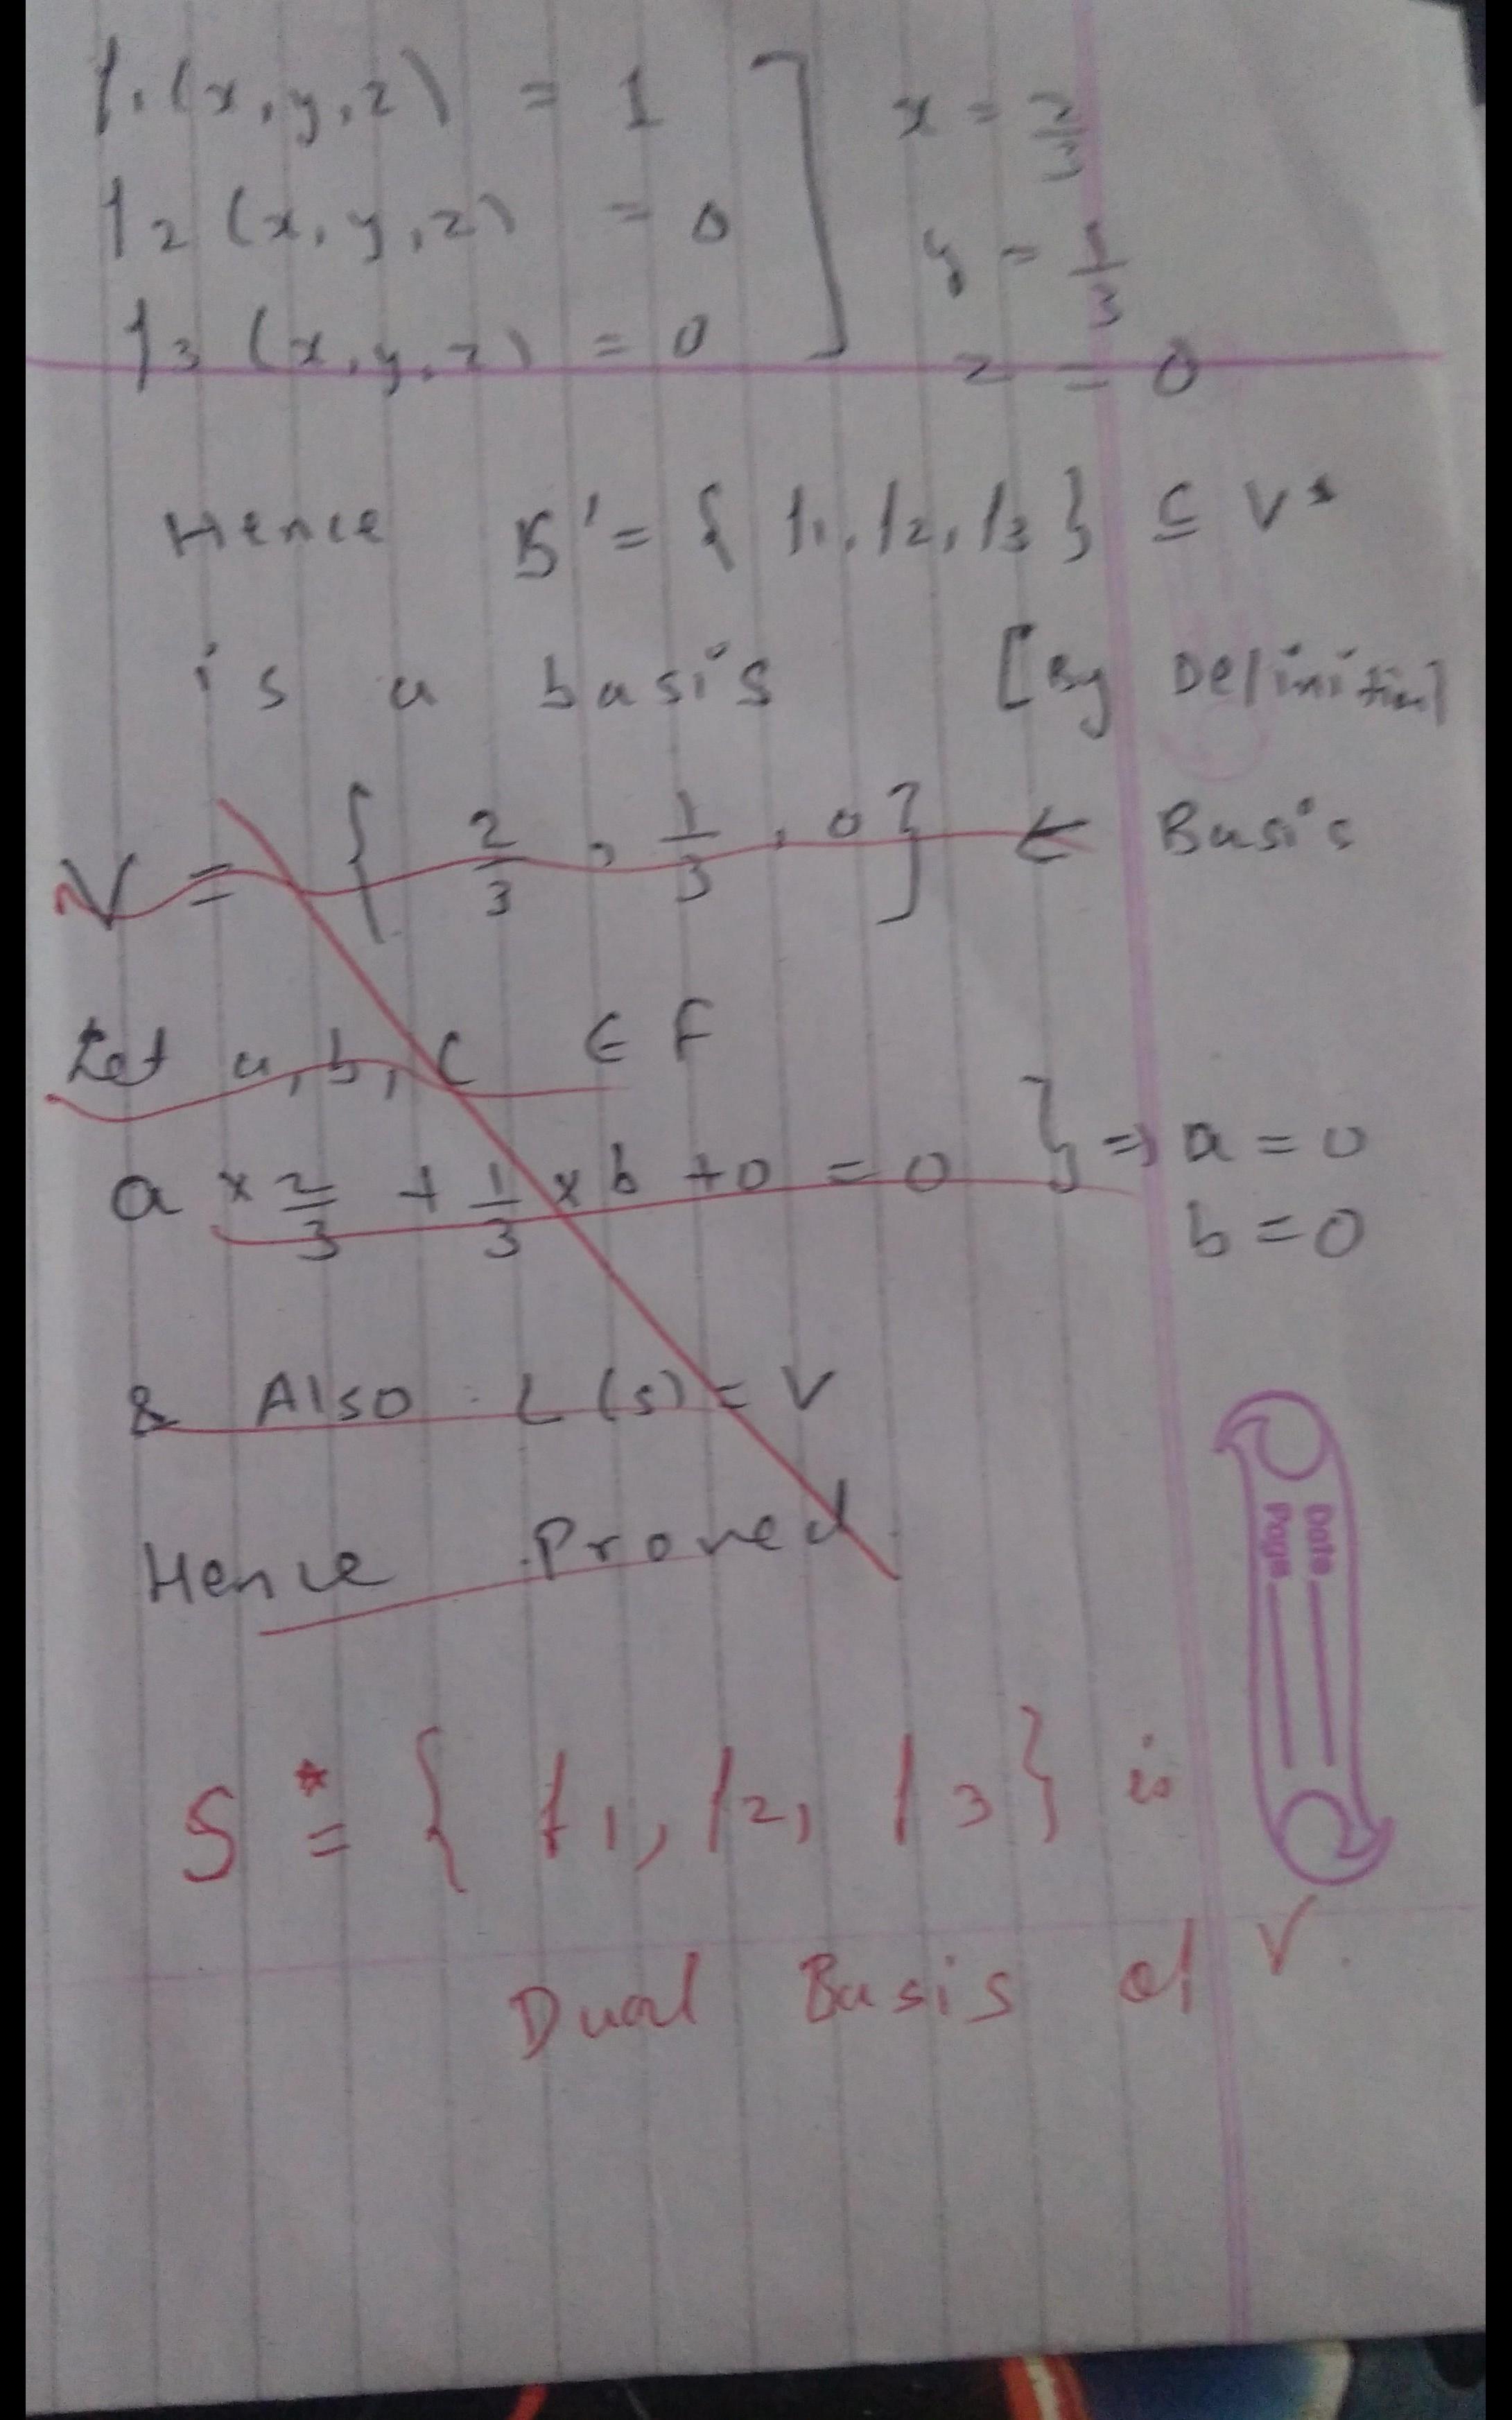 f1(x,y,z) = 1 ] x = 2/3
f2(x,y,z) = 0 y = 1/3
f3(x,y,z) = 0 z = 0
Hence B' = { f1, f2, f3 } ⊆ V*
is a basis [By Definition]
V = { 2/3, 1/3, 0 } ← Basis
Let a, b, c ∈ F
a × 2/3 + 1/3 × b + 0 = 0 } ⇒ a = 0
b = 0
& Also L(s) = V
Hence Proved.
Date
Page
S* = { f1, f2, f3 } is
Dual Basis of V.